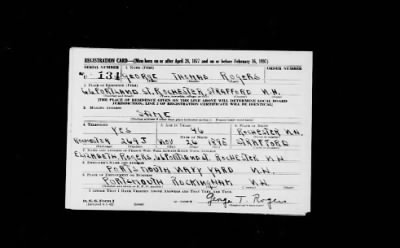 REGISTRATION CARD—(Men born on or after April 28, 1877 and on or before February 16, 1897)
SERIAL NUMBER 1. NAME (Print) ORDER NUMBER
U 134 GEORGE THOMAS ROGERS
2. PLACE OF RESIDENCE (Print)
66 PORTLAND ST. ROCHESTER, STRAFFORD N.H.
[THE PLACE OF RESIDENCE GIVEN ON THE LINE ABOVE WILL DETERMINE LOCAL BOARD
JURISDICTION; LINE 2 OF REGISTRATION CERTIFICATE WILL BE IDENTICAL]
3. MAILING ADDRESS
SAME
4. TELEPHONE 5. AGE IN YEARS 6. PLACE OF BIRTH
YES 46 ROCHESTER N.H.
ROCHESTER NOV 26 1895 STRAFFORD
7. NAME AND ADDRESS OF PERSON WHO WILL ALWAYS KNOW YOUR ADDRESS
ELIZABETH ROGERS 66 PORTLAND ST. ROCHESTER N.H.
8. EMPLOYER'S NAME AND ADDRESS
PORTSMOUTH NAVY YARD N.H.
9. PLACE OF EMPLOYMENT OR BUSINESS
PORTSMOUTH ROCKINGHAM N.H.
I AFFIRM THAT I HAVE VERIFIED ABOVE ANSWERS AND THAT THEY ARE TRUE.
D. S. S. Form 1
George T. Rogers